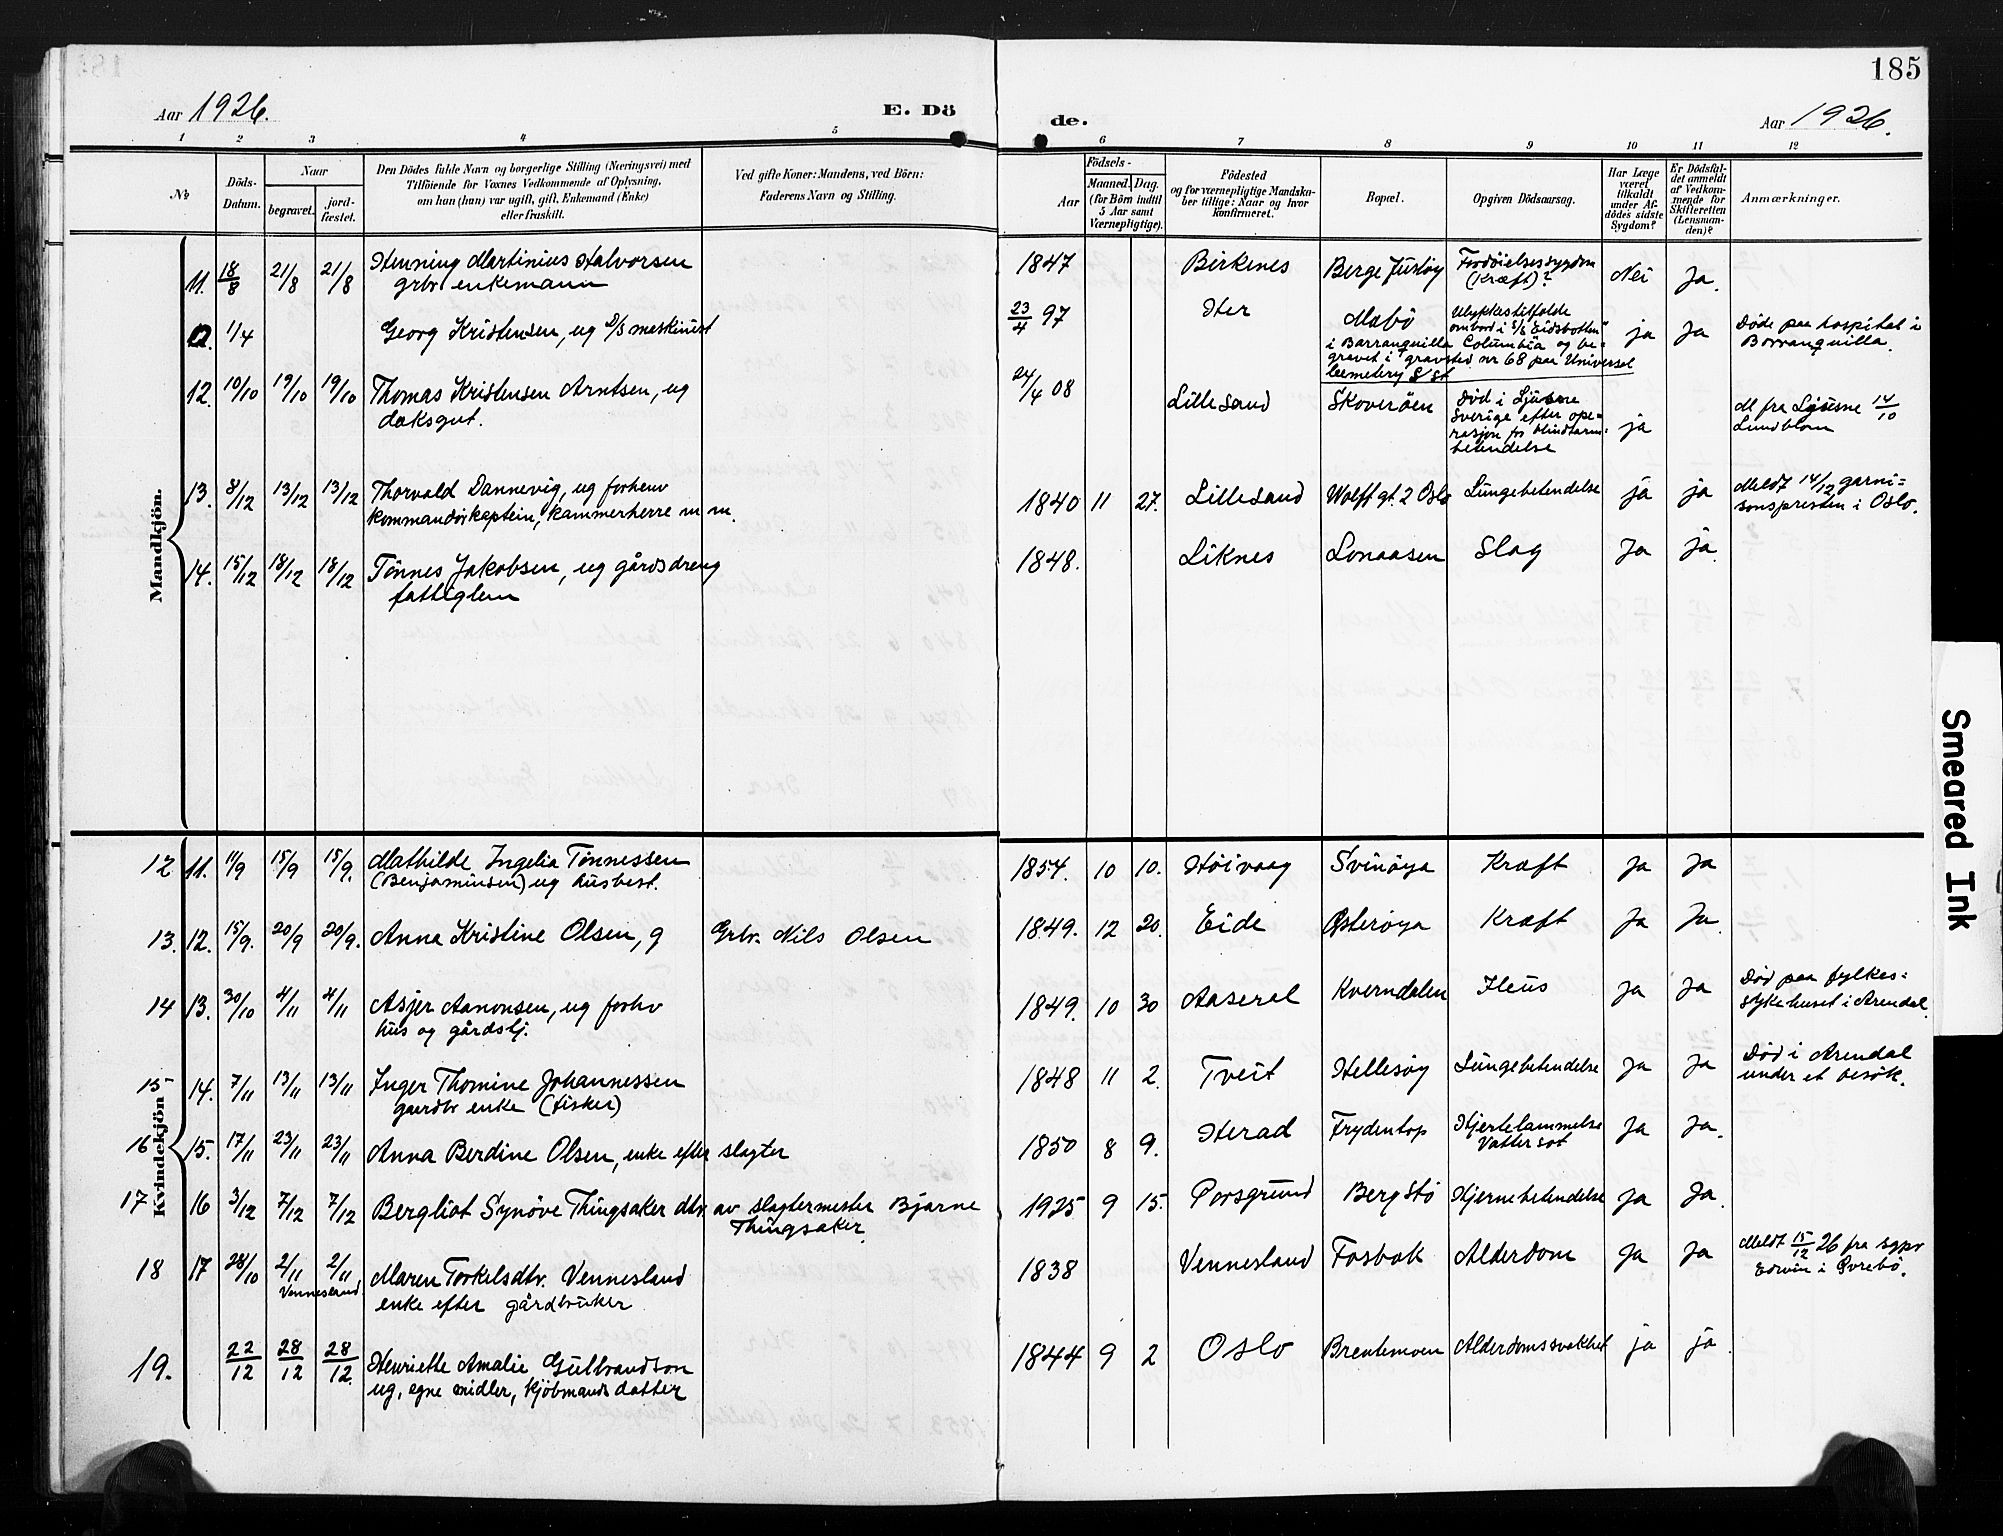 185
Aar 1926.
E. Dö
de.
Aar 1926.
1 2 3 4 5 6 7 8 9 10 11 12
№
Döds-
Datum.
Naar
begravet.
jord-
fæstet.
Den Dödes fulde Navn og borgerlige Stilling (Næringsvei) med
Tilföiende for Voxnes Vedkommende af Oplysning,
om han (hun) var ugift, gift, Enkemand (Enke)
eller fraskilt.
Ved gifte Koner: Mandens, ved Börn:
Faderens Navn og Stilling.
Födsels-
Aar
Maaned.
Dag.
(for Börn indtil
5 Aar samt
Værnepligtige).
Födested
og for værnepligtige Mandska-
ber tillige: Naar og hvor
konfirmeret.
Bopæl.
Opgiven Dödsaarsag.
Har Læge
været
tilkaldt
under Af-
dödes sidste
Sygdom?
Er Dödsfal-
det anmeldt
af Vedkom-
mende for
Skifteretten
(Lensman-
den)?
Anmærkninger.
Mandkjön.
11. 18/8 21/8 21/8 Henning Martinius Halvorsen
grbr enkemann
1847 Birkenes Berge Justøy Fordøielsessygdom
(Kræft)? Nei Ja.
1/4 Georg Kristensen, ug D/S maskinist
23/4 97 Her Mebö Ulykkestilfolde
ombord i S/S "Eidsbotten"
i Barranquilla Columbia og be-
gravet i gravsted nr 68 paa Universel
Cemetery S/St
ja Ja Döde paa hospital i
Borranquilla.
12. 10/10 19/10 19/10 Thomas Kristensen Arntsen, ug
daksgut.
24/4 08 Lillesand Skoverøen Død i Ljusne
Sverige efter ope=
rasjon for blindtarm-
betendelse
ja
M fra Ljusne 14/10
Lundblom
13. 8/12 13/12 13/12 Thorvald Dannevig, ug forhenv
kommandörkaptein, kammerherre m m.
1840 11 27. Lillesand Wolffgt. 2 Oslo Lungebetendelse ja ja Meldt 14/12 garni=
sonspresten i Oslo.
14. 15/12 18/12 18/12 Tönnes Jakobsen, ug gårdsdreng
fattiglem
1848. Liknes Lonaasen Slag Ja ja.
Kvindekjön
12 11. 11/9 15/9 15/9. Mathilde Ingelia Tönnessen
(Benjaminsen) ug husbest.
1854. 10 10. Høivaag Svinøya Kræft Ja Ja
13. 12. 15/9. 20/9 20/9. Anna Kristine Olsen, g Grbr. Nils Olsen
1849. 12 20. Eide Østerøya Kræft Ja Ja.
14 13. 30/10 4/11 4/11 Asjer Aanonsen, ug forhv
hus og gårdslj.
1849. 10 30 Aaseral Kverndalen Ileus Ja Ja Død paa fylkes=
sykehuset i Arendal.
15 14. 7/11 13/11 13/11 Inger Thomine Johannessen
gaardbr enke (fisker)
1848 11 2. Tveit Hellesøy Lungebetendelse Ja Ja Død i Arendal
under et besök.
16 15. 17/11 23/11 23/11 Anna Berdine Olsen, enke efter slagter
1850 8 9. Herad Frydentop Hjertelammelse
Vattersot Ja Ja.
17 16 3/12 7/12 7/12 Bergliot Synöve Thingsaker dtr av slagtermester Bjarne
Thingsaker.
1925 9 15. Porsgrund Bergstö Hjernebetendelse ja Ja.
18 17 28/10 2/11 2/11 Maren Torkelsdtr. Vennesland
Vennesland
enke efter gårdbruker
1838 Vennesland Fosbæk Alderdom Ja Ja Meldt 15/12 26 fra sgpr
Edwin i Øvrebö.
19. 22/12 28/12 28/12. Henriette Amalie Gulbrandson
ug, egne midler, kjöbmands datter
1844 9 2 Oslo Brentemoen Alderdomssvakhet ja ja
Smeared Ink